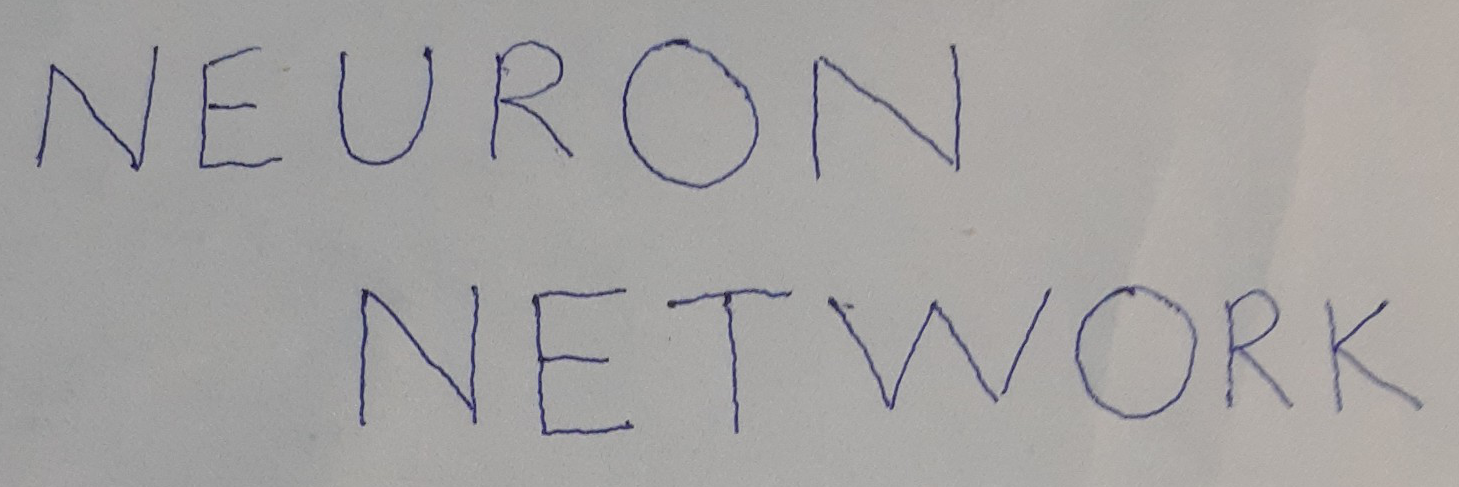 NEURON
NETWORK